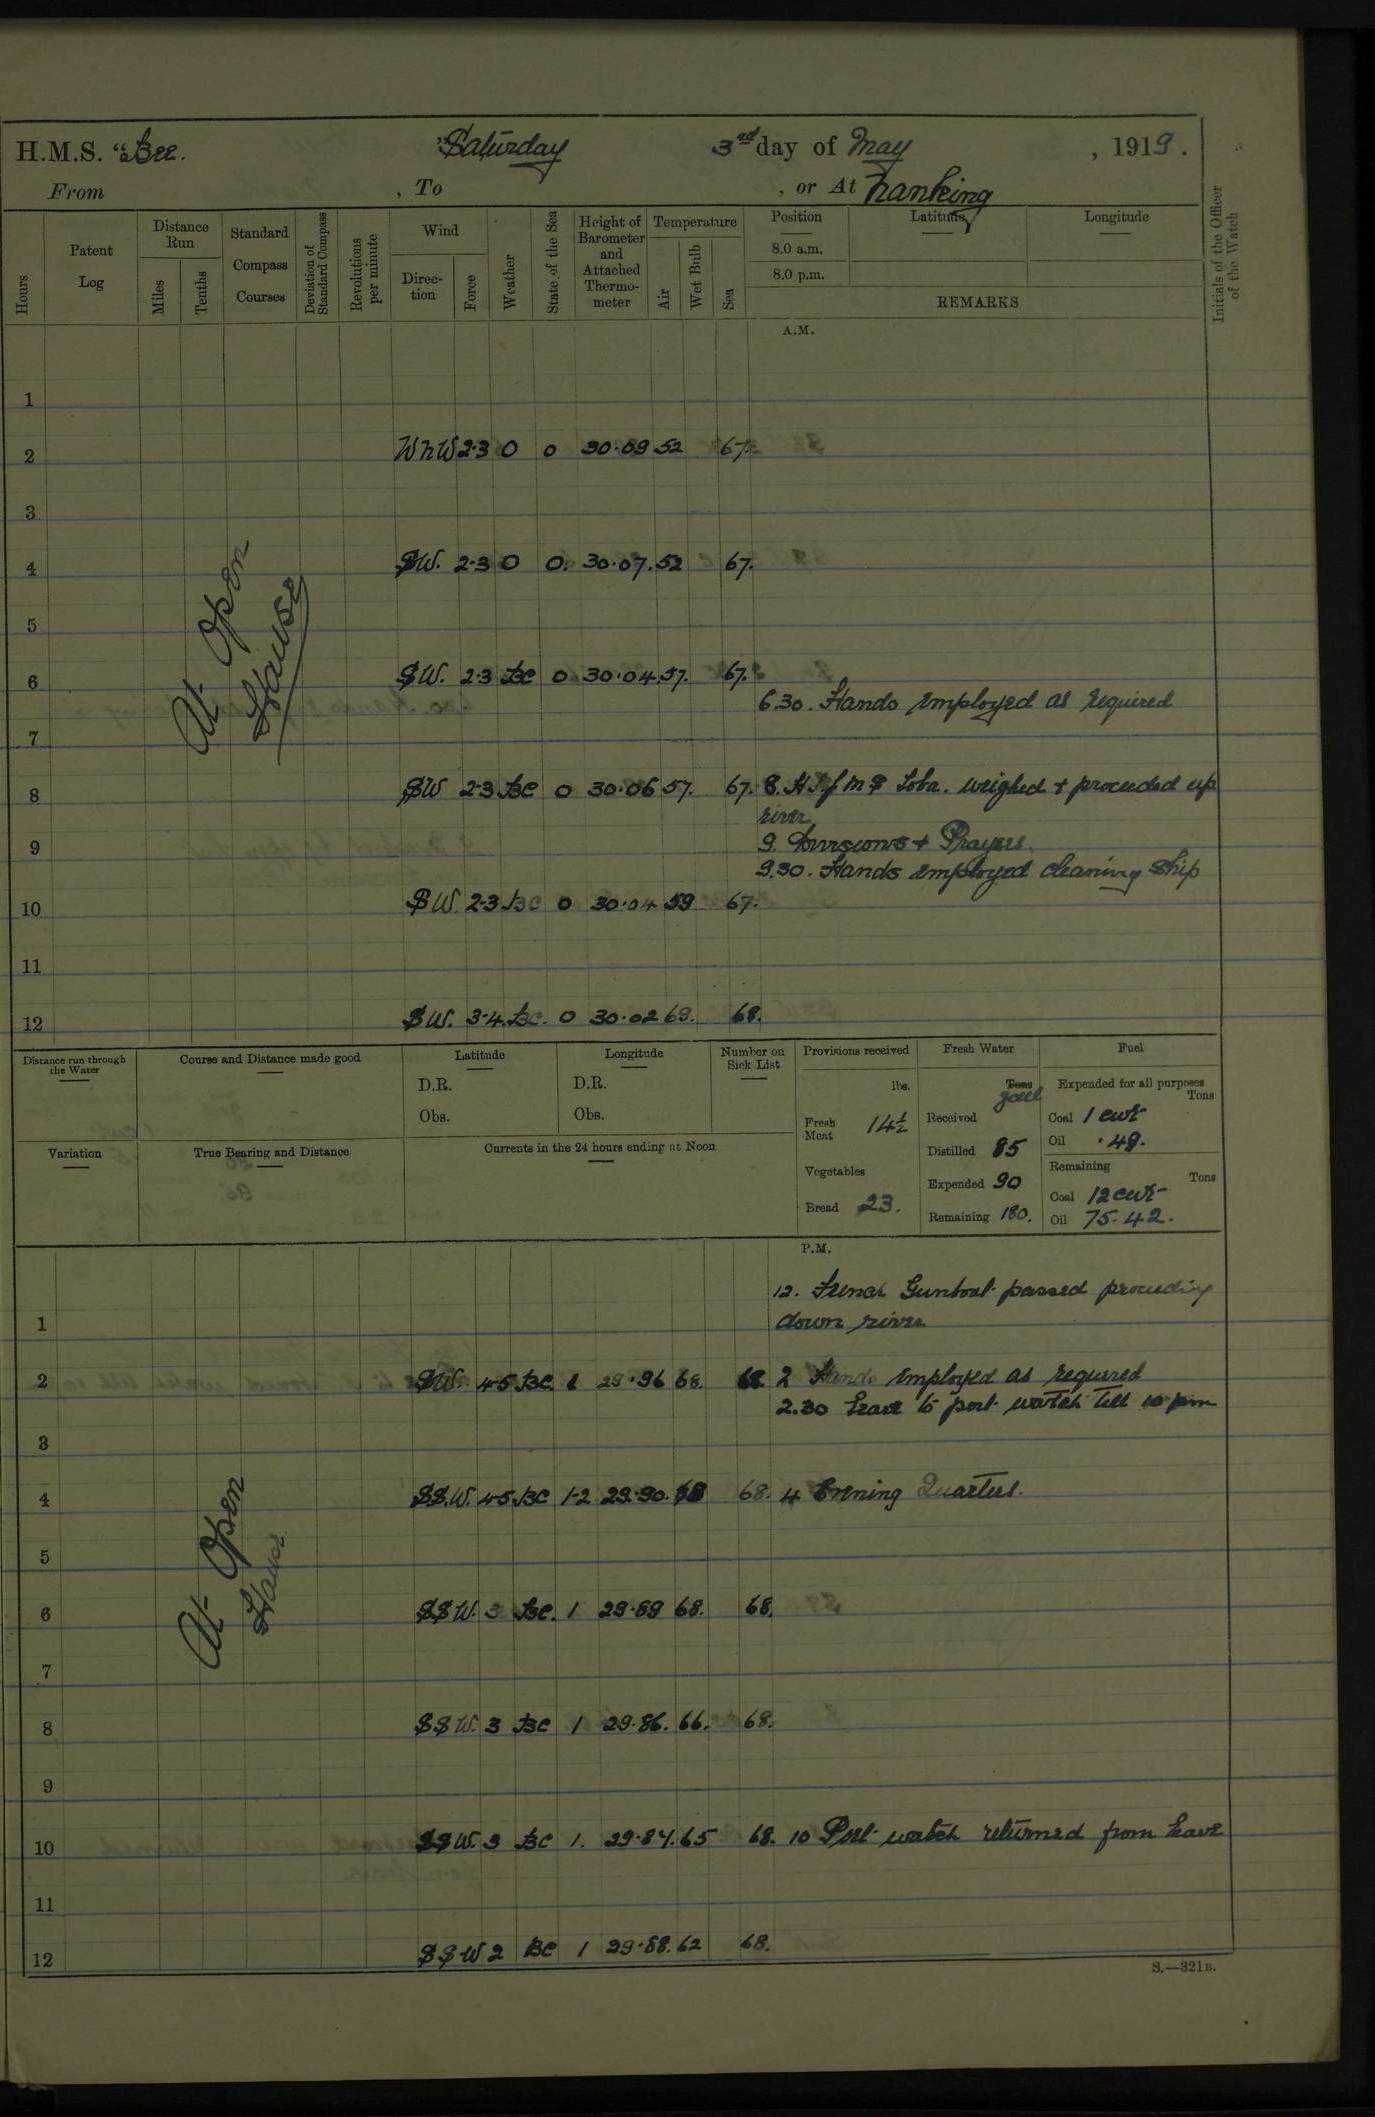 H.M.S. "Bee. Saturday 3rd day of May, 1919.
From , To , or At Nanking
Hours
Patent Log
Distance Run
Miles
Tenths
Standard Compass Courses
Deviation of Standard Compass
Revolutions per minute
Wind
Direction
Force
Weather
State of the Sea
Height of Barometer and Attached Thermometer
Temperature
Air
Wet Bulb
Sea
Position
Latitude
Longitude
8.0 a.m.
8.0 p.m.
REMARKS
Initials of the Officer of the Watch
A.M.
1
2 WNW 2-3 O 0 30.09 52 67.
3
4 SW. 2-3 O 0. 30.07. 52 67.
5
At Open Hawse
6 SW. 2-3 BC 0 30.04. 57. 67.
6.30. Hands employed as required
7
8 SW 2-3 BC 0 30.06 57. 67. 8. weighed + proceeded up
river
9 9. Divisions + Prayers.
9.30. Hands employed cleaning ship
10 SW. 2-3 BC 0 30.04 59 67.
11
12 SW. 3-4. BC. 0 30.02 68.
Distance run through the Water
Course and Distance made good
Latitude
D.R.
Obs.
Longitude
D.R.
Obs.
Number on Sick List
Provisions received
lbs.
Fresh Meat 14½
Vegetables
Bread 23.
Fresh Water
Tons
Received
Distilled 85
Expended 90
Remaining 180.
Fuel
Expended for all purposes
Tons
Coal 1 cwt
Oil .49.
Remaining
Tons
Coal 12 cwt
Oil 75.42.
Variation
True Bearing and Distance
Currents in the 24 hours ending at Noon
P.M.
12. French Gunboat passed proceeding
1 down river
2 SW. 4-5 BC. 1 29.96 68. 68. 2 Hands employed as required
2.30 Leave to port watch till 10 pm
3
4 SS.W. 4-5 BC 1-2 29.90. 68 68. 4 Evening Quarters.
5
At Open Hawse
6 SSW. 3 BC. 1 29.89 68. 68.
7
8 SSW. 3 BC 1 29.86. 66. 68.
9
10 SSW. 3 BC 1. 29.84. 65 68. 10 Port watch returned from leave
11
12 SSW 2 BC 1 29.88. 62 68.
S.—321B.